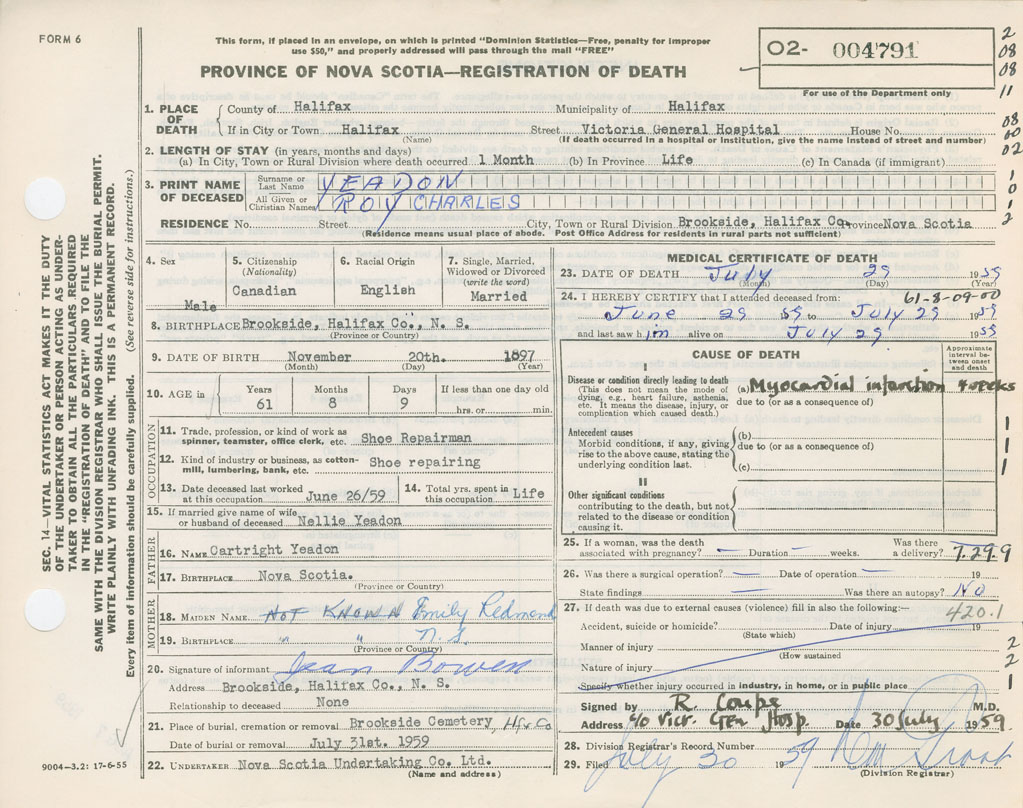 FORM 6
This form, if placed in an envelope, on which is printed "Dominion Statistics—Free, penalty for improper
use $50," and properly addressed will pass through the mail "FREE"
PROVINCE OF NOVA SCOTIA—REGISTRATION OF DEATH
O2- 004791
For use of the Department only
2
08
08
11
1. PLACE OF DEATH { County of Halifax Municipality of Halifax
If in City or Town Halifax Street Victoria General Hospital House No.
(Name) (If death occurred in a hospital or institution, give the name instead of street and number)
08
60
02
2. LENGTH OF STAY (in years, months and days)
(a) In City, Town or Rural Division where death occurred 1 Month (b) In Province Life (c) In Canada (if immigrant)
3. PRINT NAME OF DECEASED
Surname or Last Name YEADON
All Given or Christian Names ROY CHARLES
1
0
1
2
RESIDENCE No. Street City, Town or Rural Division Brookside, Halifax Co. Province Nova Scotia
(Residence means usual place of abode. Post Office Address for residents in rural parts not sufficient)
4. Sex
Male
5. Citizenship
(Nationality)
Canadian
6. Racial Origin
English
7. Single, Married,
Widowed or Divorced
(write the word)
Married
8. BIRTHPLACE Brookside, Halifax Co., N. S.
(Province or Country)
9. DATE OF BIRTH November 20th. 1897
(Month) (Day) (Year)
10. AGE in { Years Months Days If less than one day old
61 8 9 hrs. or min.
OCCUPATION
11. Trade, profession, or kind of work as
spinner, teamster, office clerk, etc. Shoe Repairman
12. Kind of industry or business, as cotton-
mill, lumbering, bank, etc. Shoe repairing
13. Date deceased last worked
at this occupation June 26/59
14. Total yrs. spent in
this occupation Life
15. If married give name of wife
or husband of deceased Nellie Yeadon
FATHER
16. NAME Cartright Yeadon
17. BIRTHPLACE Nova Scotia.
(Province or Country)
MOTHER
18. MAIDEN NAME NOT KNOWN Emily Redmond
19. BIRTHPLACE " " N.S.
(Province or Country)
20. Signature of informant Jean Bowen
Address Brookside, Halifax Co., N. S.
Relationship to deceased None
21. Place of burial, cremation or removal Brookside Cemetery, Hfx Co
Date of burial or removal July 31st. 1959
22. UNDERTAKER Nova Scotia Undertaking Co. Ltd.
(Name and address)
MEDICAL CERTIFICATE OF DEATH
23. DATE OF DEATH July 29 1959
(Month) (Day) (Year)
24. I HEREBY CERTIFY that I attended deceased from: 61-8-09-00
June 29 59 to July 29 1959
and last saw him alive on July 29 1959
CAUSE OF DEATH
Approximate
interval be-
tween onset
and death
I
Disease or condition directly leading to death
(This does not mean the mode of
dying, e.g., heart failure, asthenia,
etc. It means the disease, injury, or
complication which caused death.)
(a) Myocardial infarction 4 weeks
due to (or as a consequence of)
Antecedent causes
Morbid conditions, if any, giving
rise to the above cause, stating the
underlying condition last.
(b)
due to (or as a consequence of)
(c)
1
1
1
II
Other significant conditions
contributing to the death, but not
related to the disease or condition
causing it.
25. If a woman, was the death
associated with pregnancy? — Duration — weeks. Was there
a delivery? —
7.29.9
26. Was there a surgical operation? — Date of operation — 19
State findings — Was there an autopsy? NO
27. If death was due to external causes (violence) fill in also the following:—
420.1
Accident, suicide or homicide? Date of injury 19
(State which)
Manner of injury
(How sustained
Nature of injury
Specify whether injury occurred in industry, in home, or in public place
2
2
1
Signed by R. Coupe M.D.
Address c/o Vict. Gen. Hosp. Date 30 July 1959.
28. Division Registrar's Record Number
29. Filed July 30 1959
(Division Registrar)
SEC. 14—VITAL STATISTICS ACT MAKES IT THE DUTY
OF THE UNDERTAKER OR PERSON ACTING AS UNDER-
TAKER TO OBTAIN ALL THE PARTICULARS REQUIRED
IN THE "REGISTRATION OF DEATH" AND TO FILE THE
SAME WITH THE DIVISION REGISTRAR WHO SHALL ISSUE THE BURIAL PERMIT.
WRITE PLAINLY WITH UNFADING INK. THIS IS A PERMANENT RECORD.
Every item of information should be carefully supplied. (See reverse side for instructions.)
9004—3.2: 17-6-55